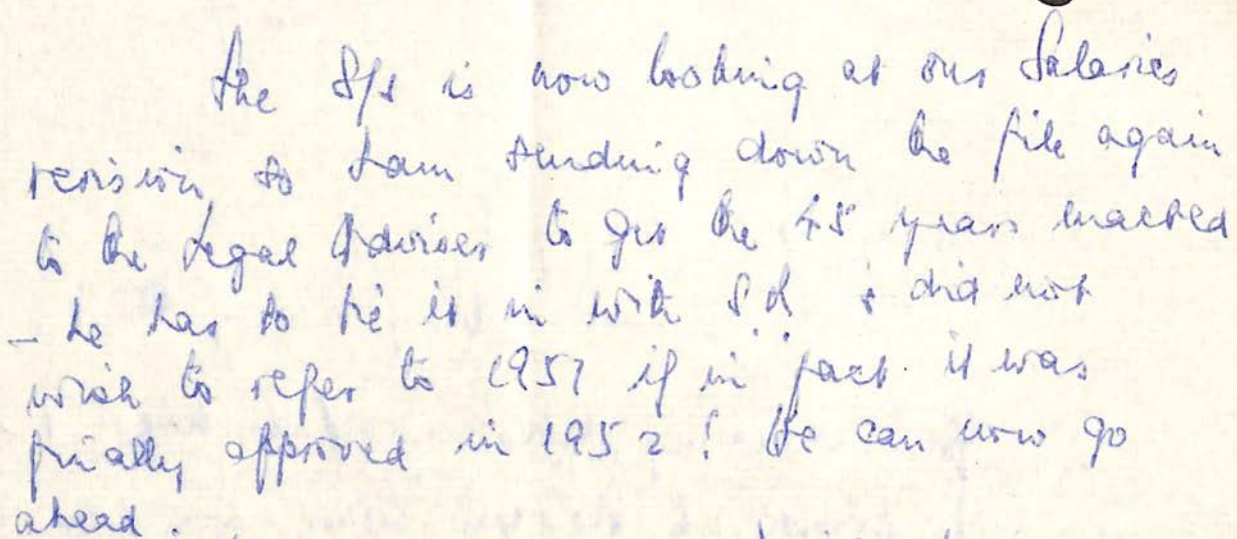 The S/S is now looking at our Salaries
revision, so I am sending down the file again
to the Legal Adviser to get the 45 years enacted
- he has to tie it in with S.R. & did not
wish to refer to 1951 if in fact it was
finally approved in 1952! He can now go
ahead.